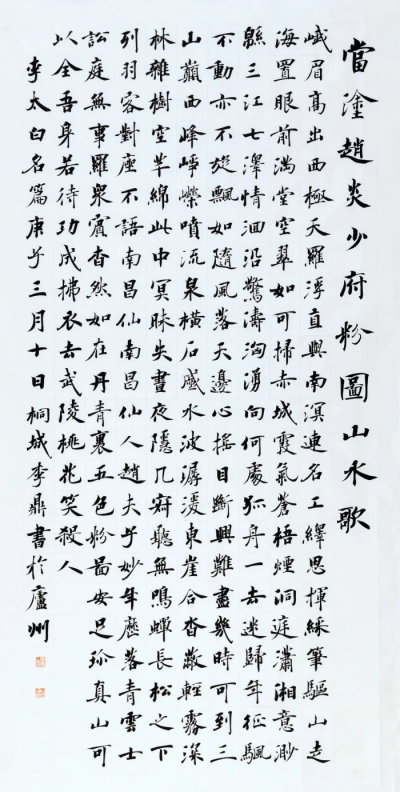 當塗趙炎少府粉圖山水歌
峨眉高出西極天羅浮直與南溟連名工繹思揮綵筆驅山走
海置眼前滿堂空翠如可掃赤城霞氣蒼梧煙洞庭瀟湘意渺
緜三江七澤情洄沿驚濤洶湧向何處孤舟一去迷歸年征颿
不動亦不旋飄如隨風落天邊心搖目斷興難盡幾時可到三
山巔西峰崢嶸噴流泉橫石蹙水波潺湲東崖合沓蔽輕霧深
林雜樹空芊綿此中冥昧失晝夜隱几寂聽無鳴蟬長松之下
列羽客對座不語南昌仙南昌仙人趙夫子妙年歷落青雲士
訟庭無事羅眾賓杳然如在丹青裏五色粉圖安足珍真山可
以全吾身若待功成拂衣去武陵桃花笑殺人
李太白名篇庚子三月十日桐城李鼎書於廬州